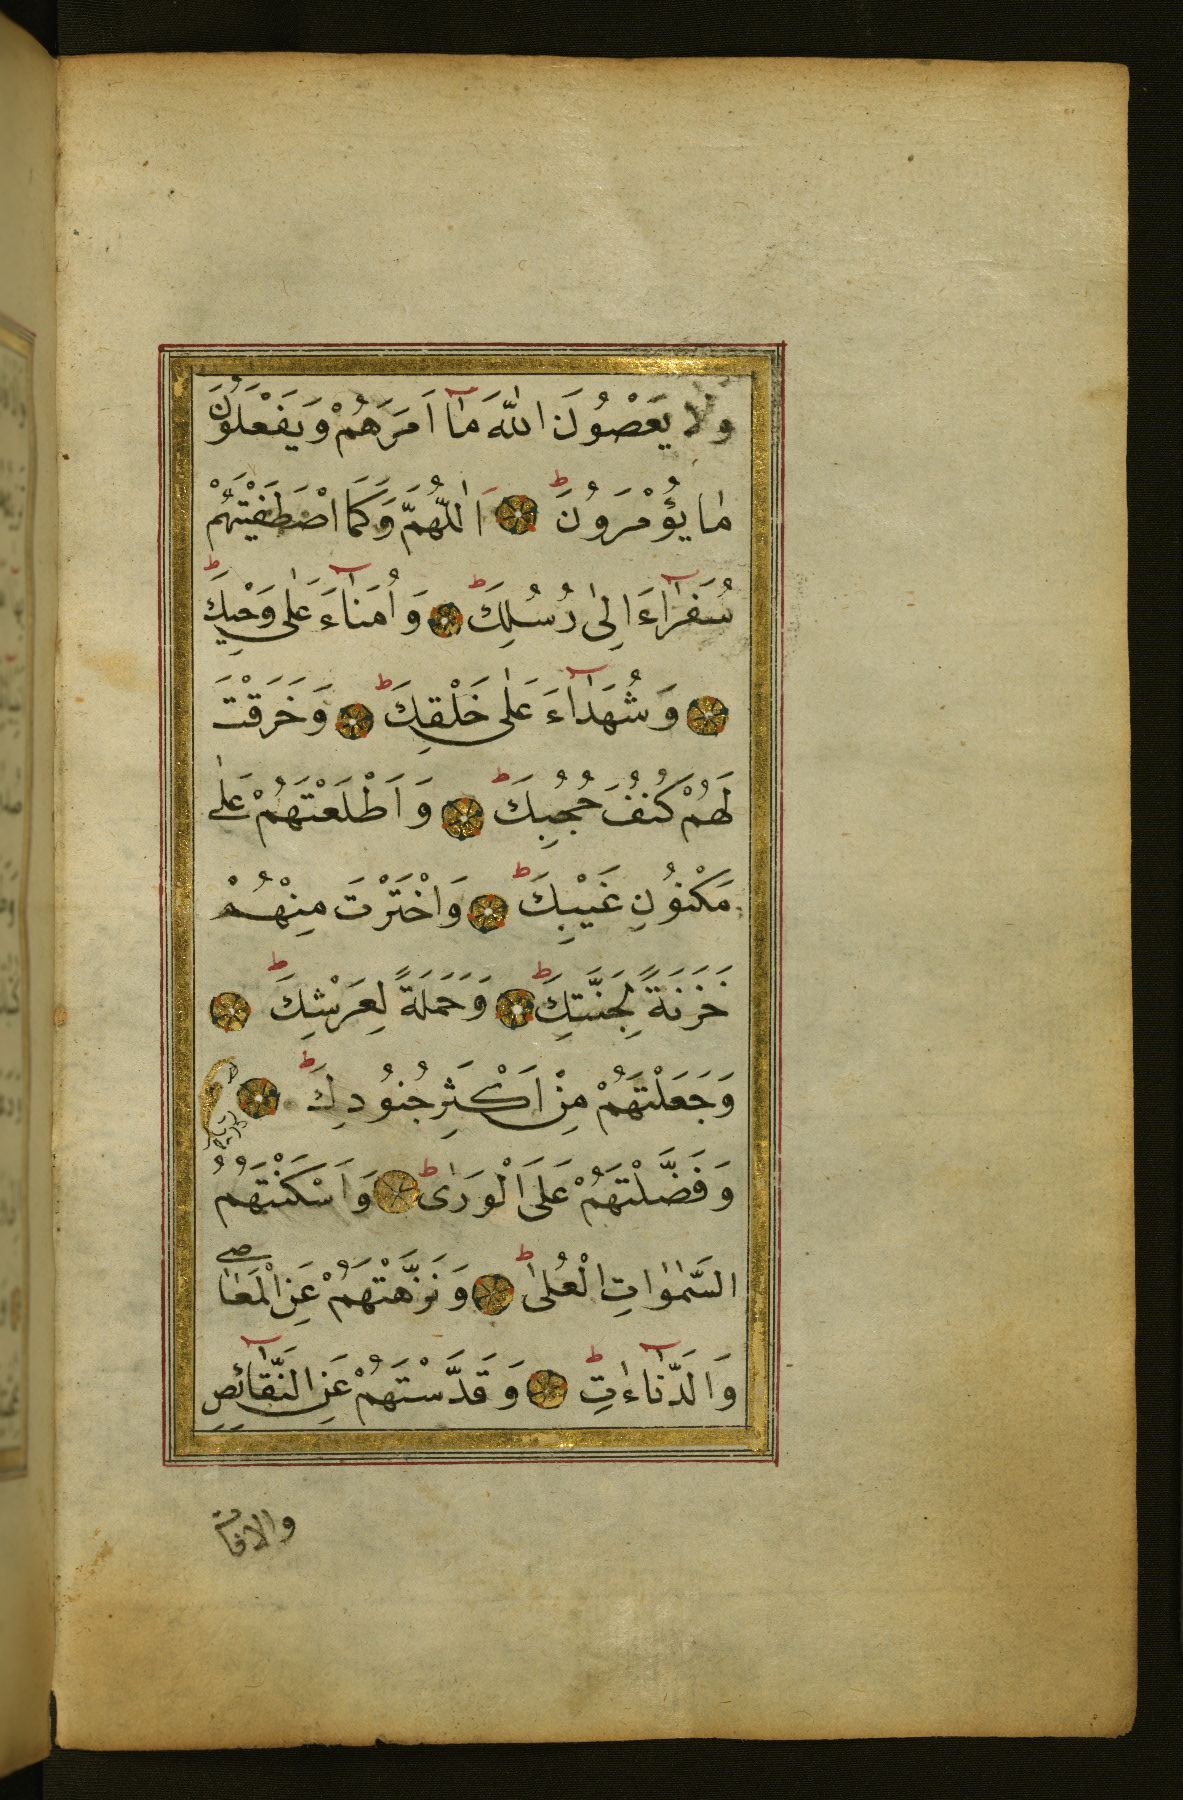 ولا يَعْصُونَ اللّٰهَ مَآ اَمَرَهُمْ وَيَفْعَلُونَ
مٰا يُؤْمَرُونَ ط اَللّٰهُمَّ وَكَمَا اصْطَفَيْتَهُمْ
سُفَرَآءَ اِلٰى رُسُلِكَ ط وَاُمَنَآءَ عَلٰى وَحْيِكَ ط
وَشُهَدَآءَ عَلٰى خَلْقِكَ ط وَخَرَقْتَ
لَهُمْ كُنُفَ حُجُبِكَ ط وَاَطْلَعْتَهُمْ عَلٰى
مَكْنُونِ غَيْبِكَ ط وَاخْتَرْتَ مِنْهُمْ
خَزَنَةً لِجَنَّتِكَ ط وَحَمَلَةً لِعَرْشِكَ ط
وَجَعَلْتَهُمْ مِنْ اَكْثَرِ جُنُودِكَ ط
وَفَضَّلْتَهُمْ عَلَى الْوَرٰى ط وَاَسْكَنْتَهُمُ
السَّمٰوٰاتِ الْعُلٰى ط وَنَزَّهْتَهُمْ عَنِ الْمَعٰاصِي
وَالدَّنٰآءٰاتِ ط وَقَدَّسْتَهُمْ عَنِ النَّقٰآئِصِ
والافات